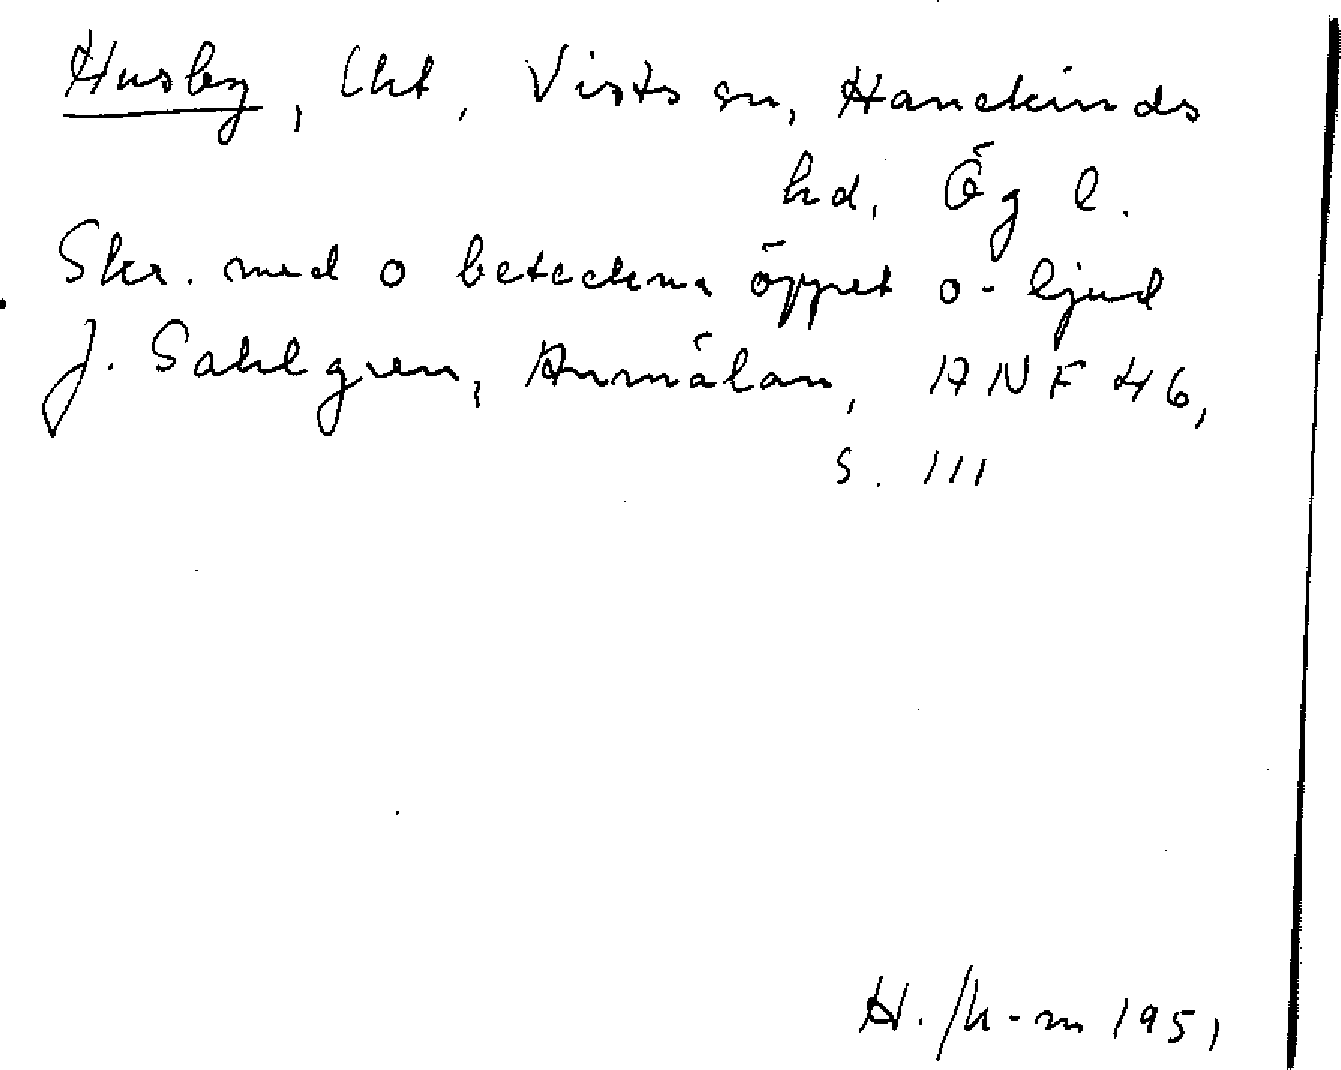 Husby, Ukt, Vists sn, Hanekinds
hd, Ög l.
Skr. med o beteckna öppet o-ljud
J. Sahlgren, Anmälan, ANF 46,
s. 111
H. /h-m 1951